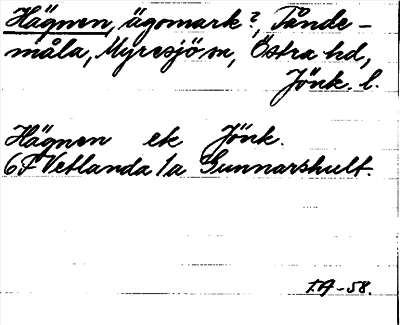 Hägnen, ägomark?, Tånde-
måla, Myresjö sn, Östra hd,
Jönk. l.
Hägnen ek Jönk.
6F Vetlanda 1a Gunnarshult.
T.A-58.